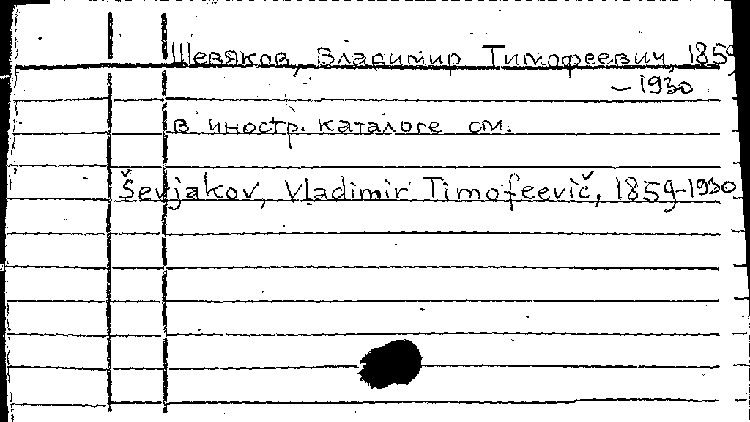 Шевяков, Владимир Тимофеевич, 1859
– 1930
в иностр. каталоге см.
Ševjakov, Vladimir Timofeevič, 1859-1930